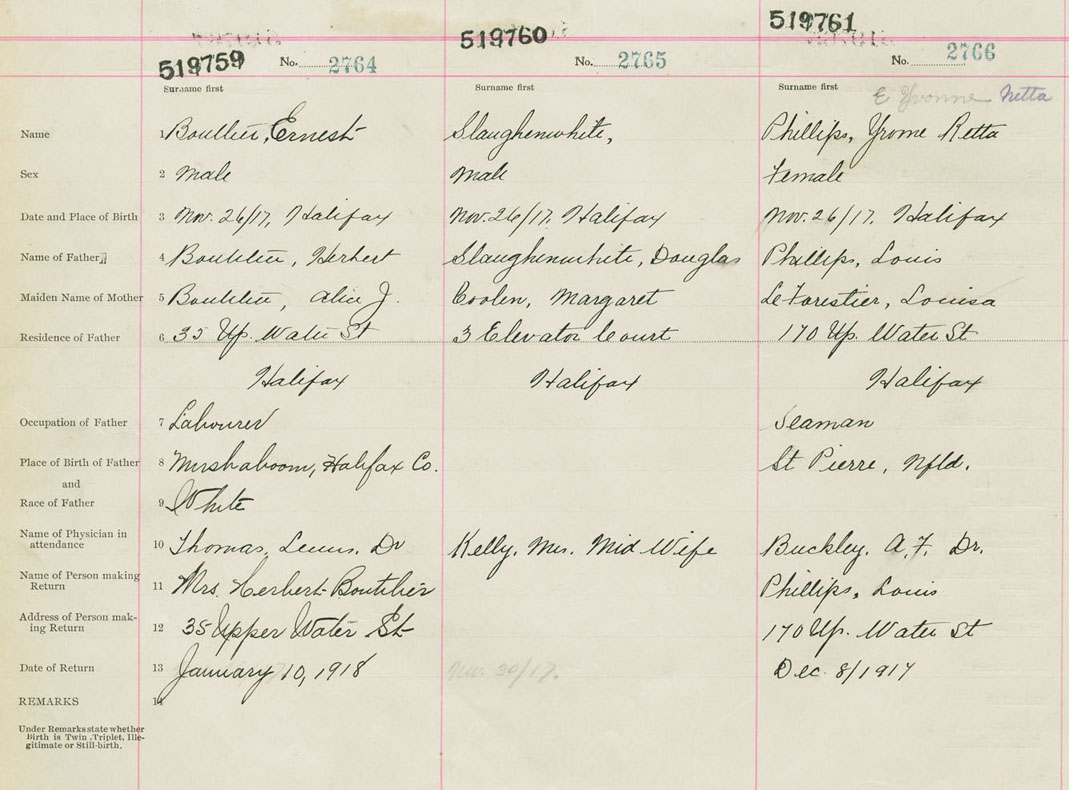 519759 No. 2764
519760 No. 2765
519761 No. 2766
Surname first Surname first Surname first E Yvonne Netta
Name 1 Boutilier, Ernest Slaughenwhite, Phillips, Yvonne Retta
Sex 2 Male Male Female
Date and Place of Birth 3 Nov. 26/17, Halifax Nov. 26/17. Halifax Nov. 26/17. Halifax
Name of Father 4 Boutilier, Herbert Slaughenwhite, Douglas Phillips, Louis
Maiden Name of Mother 5 Boutilier, Alice J. Coolen, Margaret LeForestier, Louisa
Residence of Father 6 35 Up. Water St 3 Elevator Court 170 Up. Water St
Halifax Halifax Halifax
Occupation of Father 7 Labourer Seaman
Place of Birth of Father 8 Mushaboom, Halifax Co. St Pierre, Nfld.
and
Race of Father 9 White
Name of Physician in attendance 10 Thomas, Lewis. Dr Kelly, Mrs. Mid Wife Buckley. A. F. Dr.
Name of Person making Return 11 Mrs. Herbert Boutilier Phillips, Louis
Address of Person making Return 12 35 Upper Water St 170 Up. Water St
Date of Return 13 January 10, 1918 Nov. 30/17. Dec. 8/1917
REMARKS 14
Under Remarks state whether
Birth is Twin, Triplet, Ille-
gitimate or Still-birth.